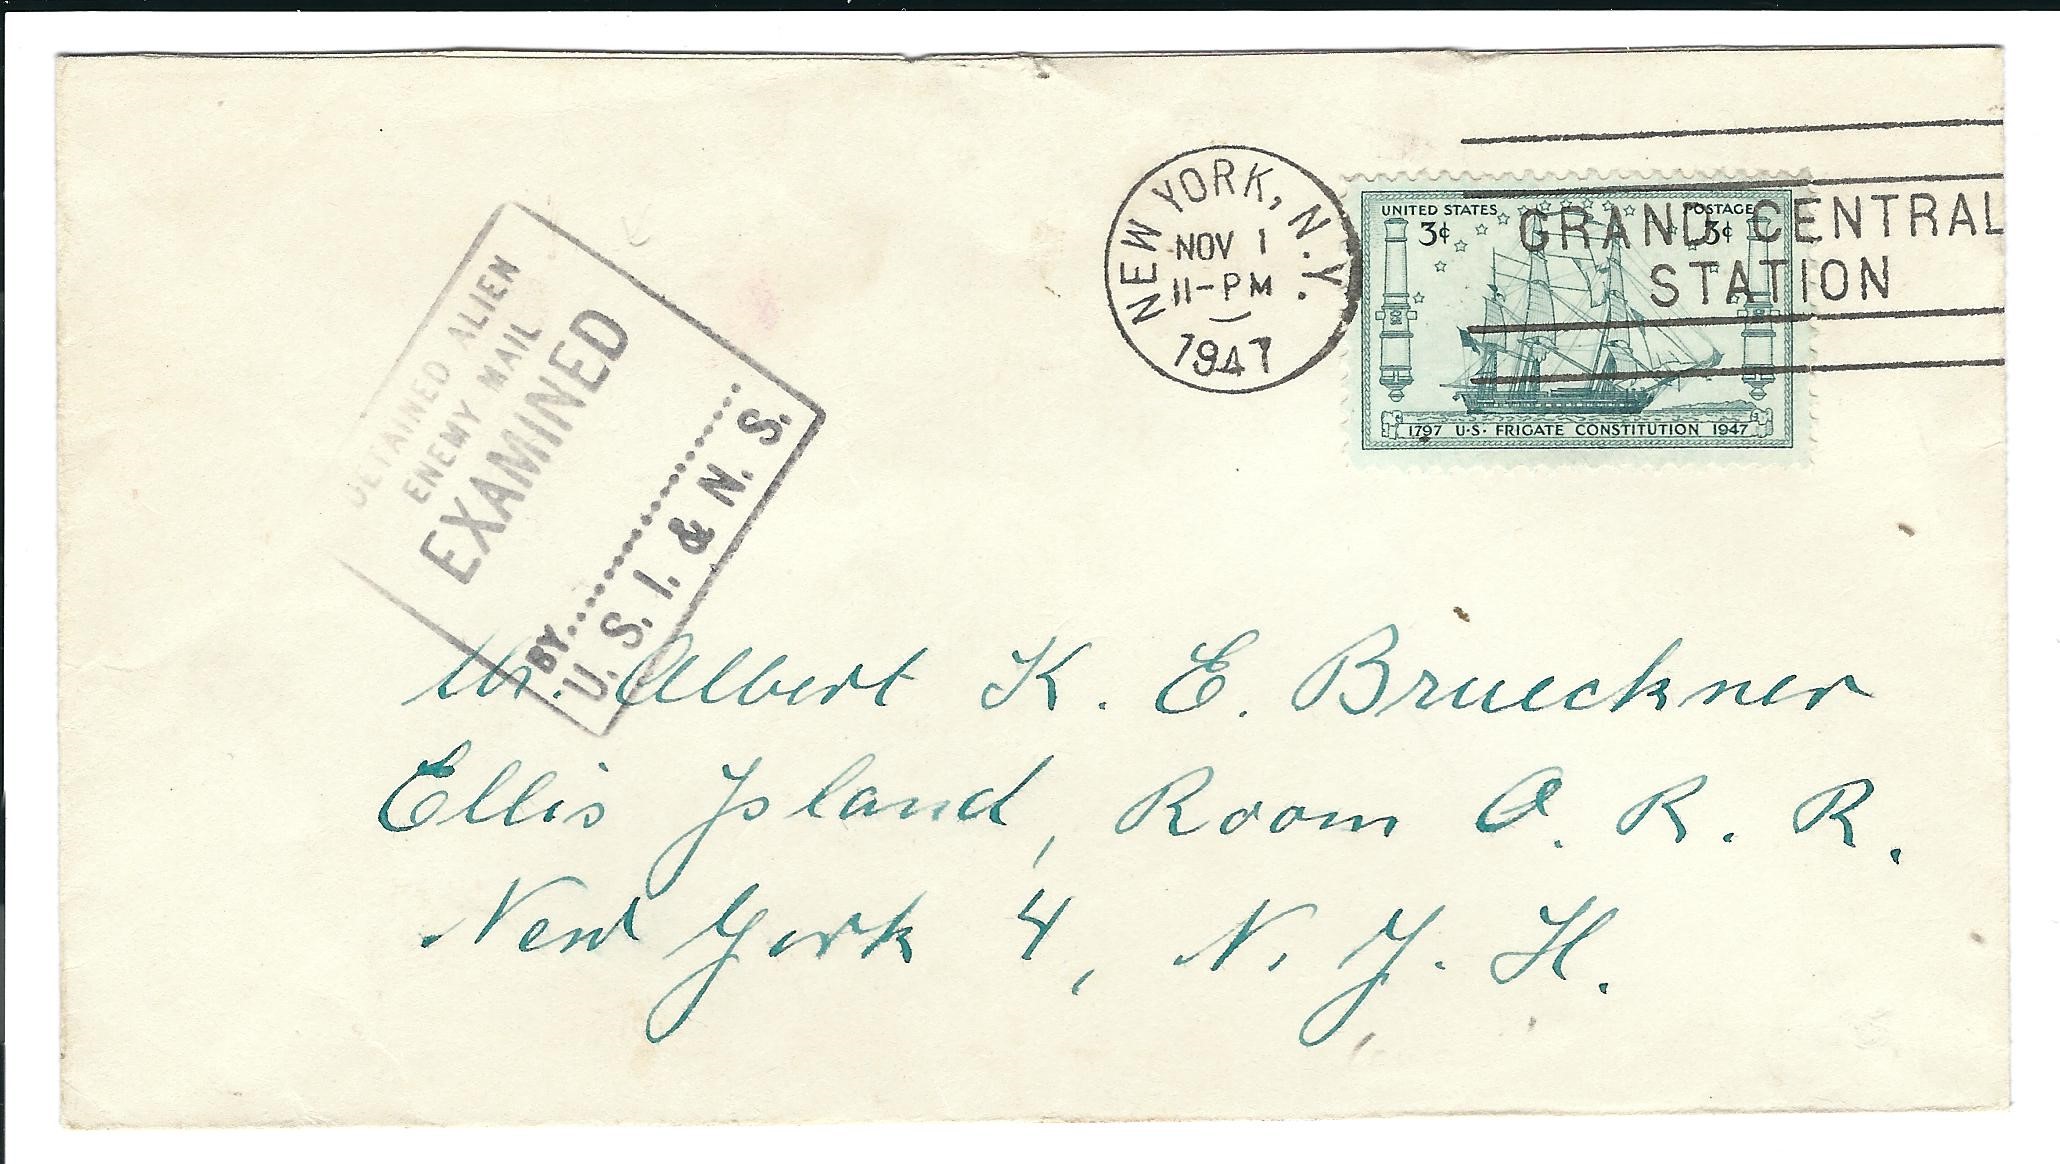 DETAINED ALIEN
ENEMY MAIL
EXAMINED
BY..................
U. S. I. & N. S.
NEW YORK, N.Y.
NOV 1
11-PM
1947
GRAND CENTRAL
STATION
UNITED STATES POSTAGE
3¢ 3¢
1797 U·S· FRIGATE CONSTITUTION 1947
Mr. Albert K. E. Brueckner
Ellis Island, Room O. R. R.
New York 4, N. Y. H.